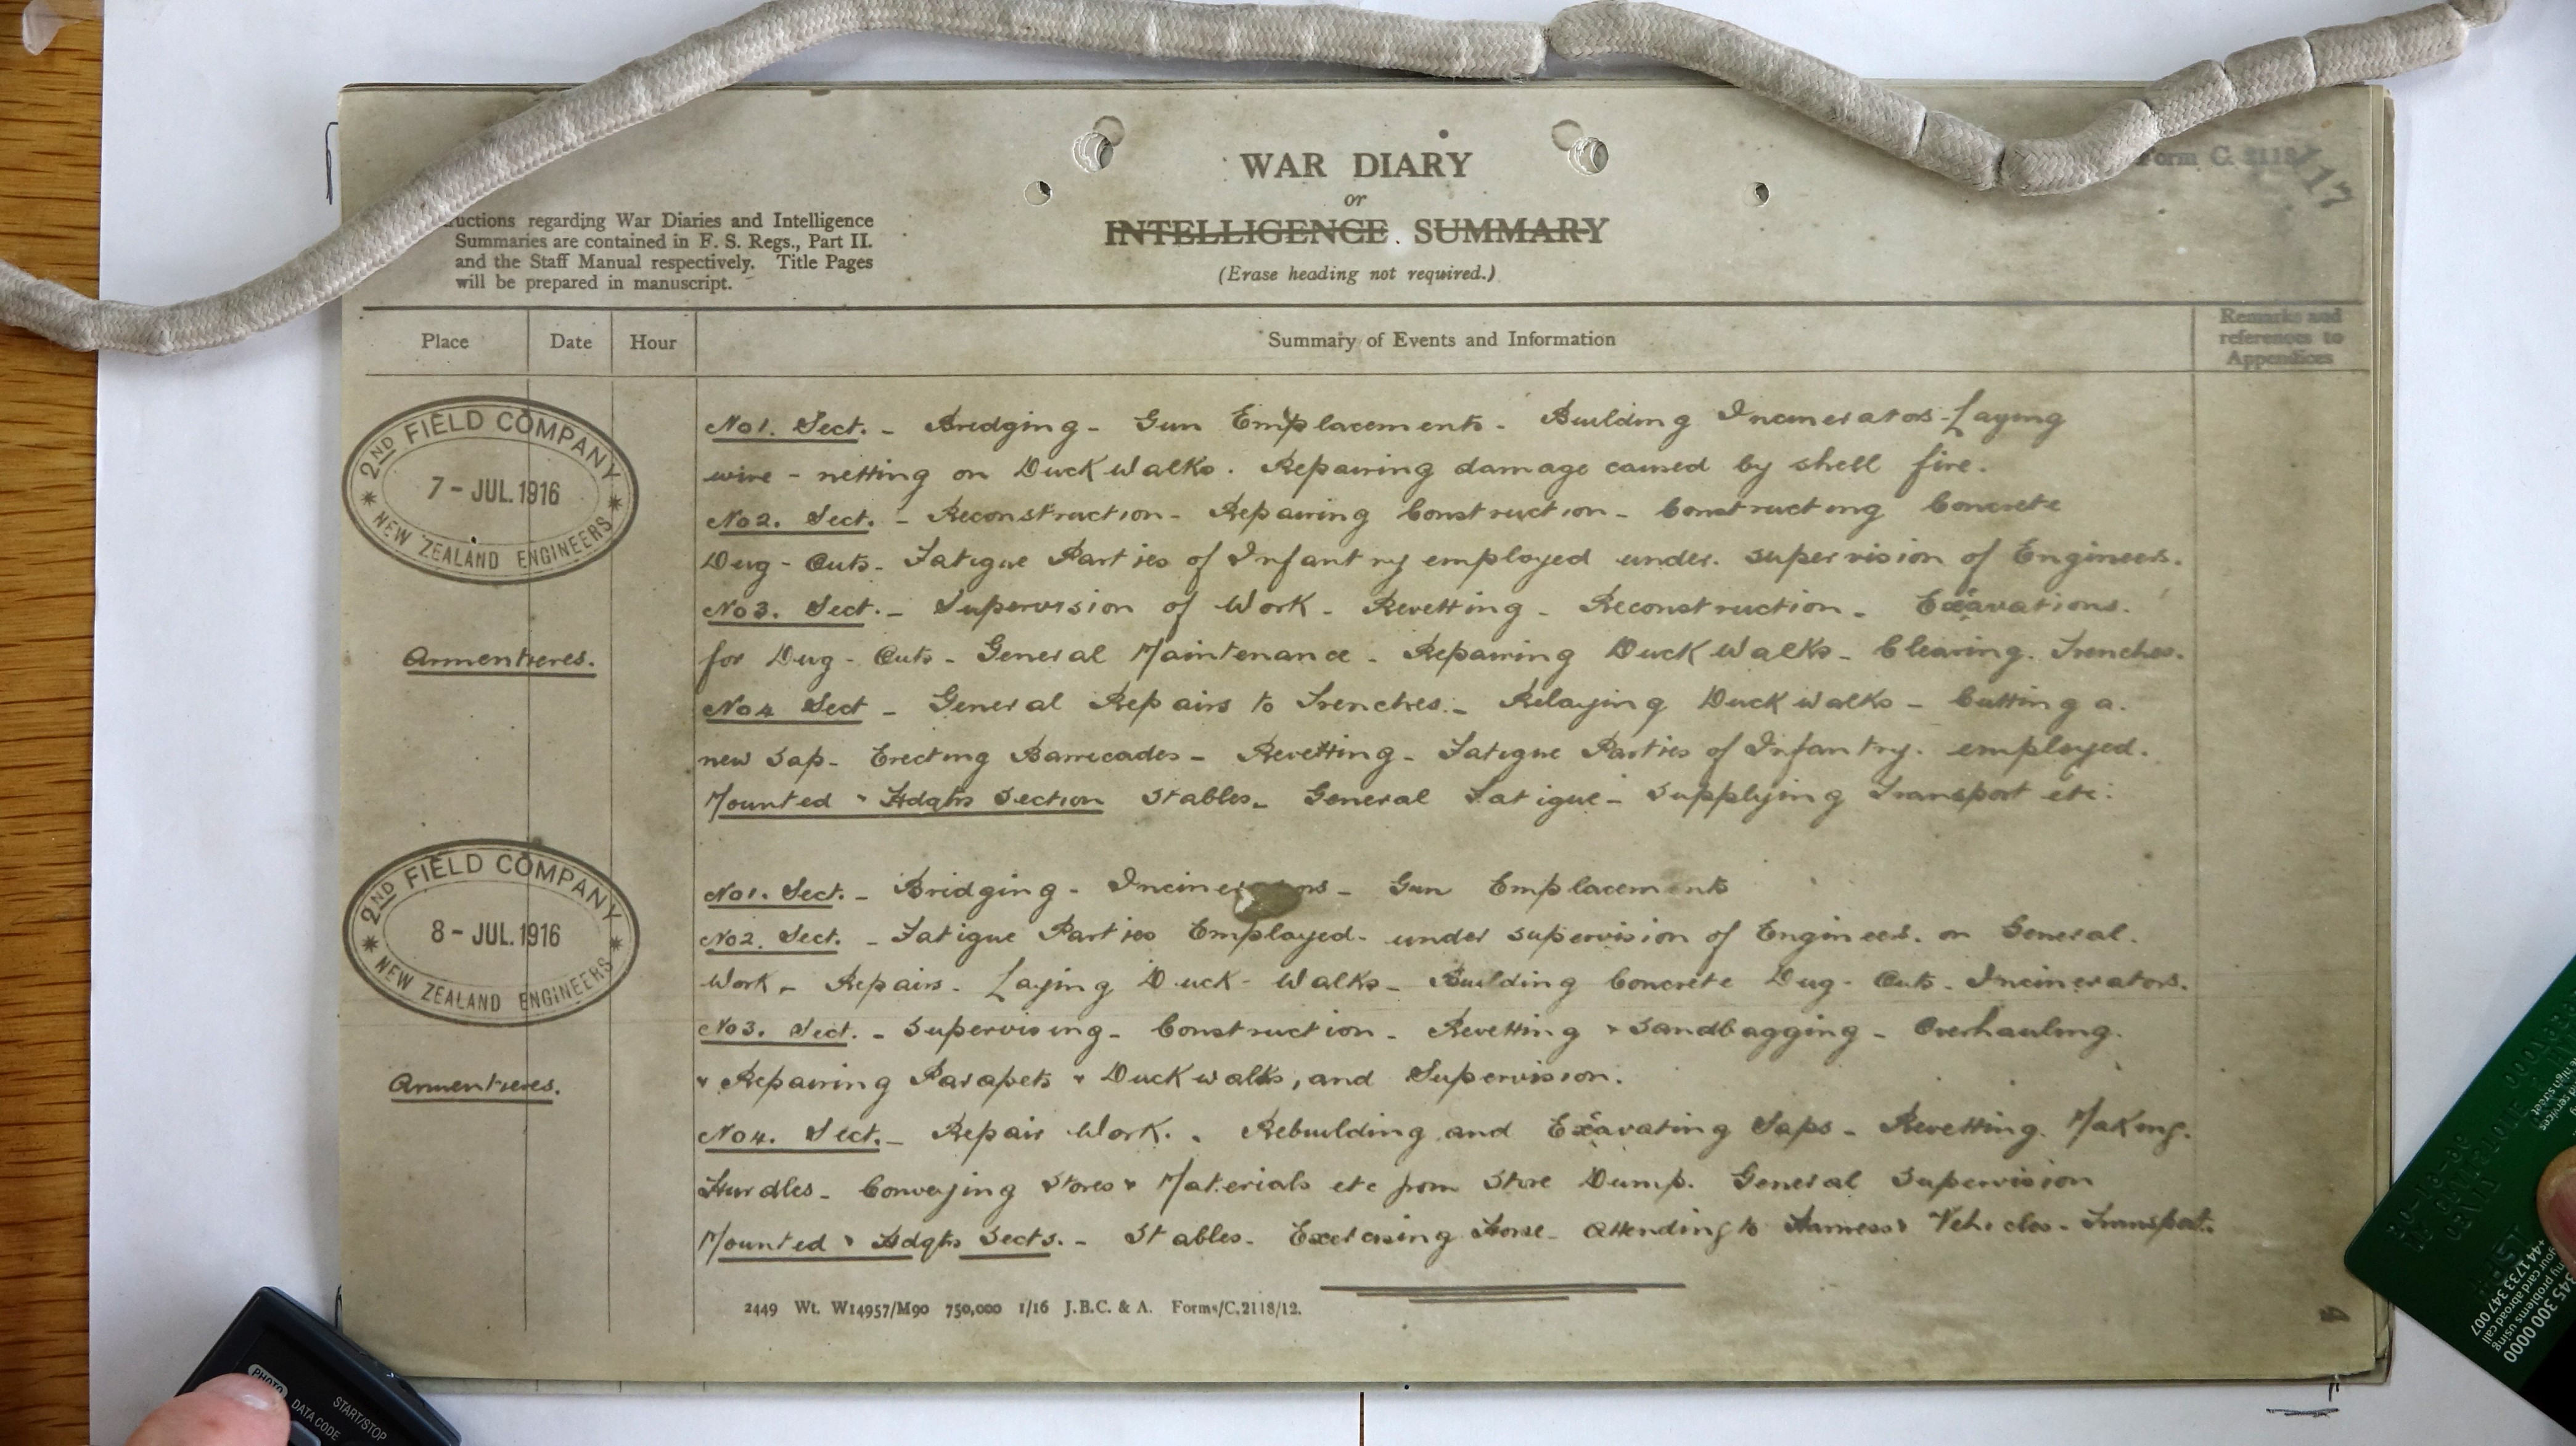 WAR DIARY
or
INTELLIGENCE SUMMARY
(Erase heading not required.)
Form C. 2118
17
uctions regarding War Diaries and Intelligence
Summaries are contained in F. S. Regs., Part II.
and the Staff Manual respectively. Title Pages
will be prepared in manuscript.
Place Date Hour Summary of Events and Information Remarks and
references to
Appendices
2ND FIELD COMPANY
7 - JUL. 1916
NEW ZEALAND ENGINEERS
Armentieres.
No1. Sect. - Bridging - Gun Emplacements - Building Incinerators - Laying
wire - netting on Duck Walks. Repairing damage caused by shell fire.
No2. Sect. - Reconstruction - Repairing Construction - Constructing Concrete
Dug - Outs - Fatigue Parties of Infantry employed under supervision of Engineers.
No3. Sect. - Supervision of Work - Revetting - Reconstruction - Excavations.
for Dug - Outs - General Maintenance - Repairing Duck Walks - Clearing Trenches.
No4 Sect - General Repairs to Trenches. - Relaying Duck walks - Cutting a.
new Sap - Erecting Barricades - Revetting - Fatigue Parties of Infantry. employed.
Mounted & Hdqtrs Section Stables - General Fatigue - Supplying Transport etc.
2ND FIELD COMPANY
8 - JUL. 1916
NEW ZEALAND ENGINEERS
Armentieres.
No1. Sect. - Bridging - Incinerators - Gun Emplacements
No2. Sect. - Fatigue Parties Employed - under supervision of Engineers. on General.
Work - Repairs - Laying Duck - Walks - Building Concrete Dug - Outs - Incinerators.
No3. Sect. - Supervising - Construction - Revetting & Sandbagging - Overhauling.
& Repairing Parapets & Duck walks, and Supervision.
No4. Sect. - Repair Work. - Rebuilding and Excavating Saps - Revetting. Making.
Hurdles - Conveying Stores & Materials etc from Store Dump. General Supervision
Mounted & Hdqtrs Sects. - Stables - Exercising Horse - Attending to Harness & Vehicles - Transport.
2449 Wt. W14957/M90 750,000 1/16 J.B.C. & A. Forms/C.2118/12.
4
PHOTO
DATA CODE
START/STOP
345 300 0000
+44 1733 347 007